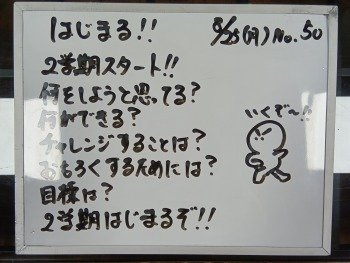 はじまる!! 8/25(月) No.50
2学期スタート!!
何をしようと思ってる?
何ができる?
チャレンジすることは?
おもろくするためには?
目標は?
2学期はじまるぞ!!
いくぞ〜!!